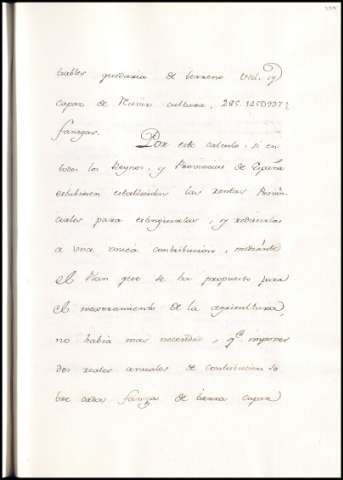 tables quedaria de terreno util, y
capaz de buena cultura, 28
fanegas. Por este calculo, si en
todos los Reynos, y Provincias de España
estubiesen establecidas las rentas Provin
ciales para extinguirlas, y reducirlas
a una unica contribucion, mediante
el Plan que se ha propuesto para
el mejoramiento de la agricultura,
no habia mas necesidad, q.e imponer
dos reales anuales de contribucion so
bre cada fanega de tierra capaz